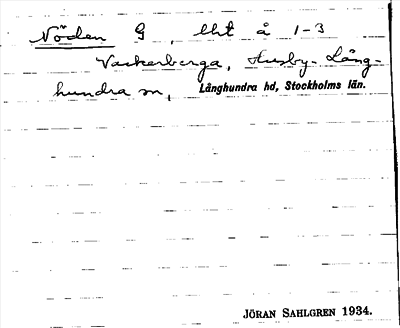 Nöden G, lht å 1-3
Vackerberga, Husby-Lång-
hundra sn, Långhundra hd, Stockholms län.
JÖRAN SAHLGREN 1934.